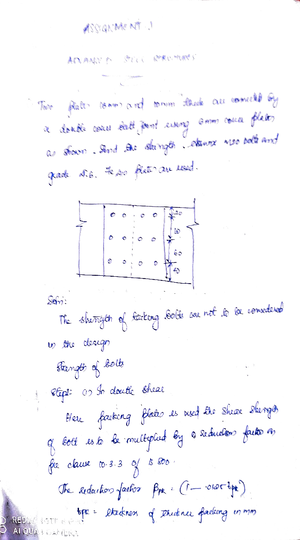 ASSIGNMENT 1
ADVANCED STEEL STRUCTURES
Two plates and 10mm thick are connected by
a double cover butt joint using 6mm cover plates
as shown. Find the strength. M20 bolts and
grade 4.6. Fe 410 plates are used.
40
60
60
40
Soln:
The strength of packing bolts are not to be considered
in the design
strength of bolts
Step1: (1) In double shear
Here packing plates is used the shear strength
of bolt is to be multiplied by a reduction factor
per clause 10.3.3 of 800
The reduction factor βpk = (1 - 0.0125 tpk)
tpk = thickness of thicker packing in mm
REDMI
AI QUAD CAMERA